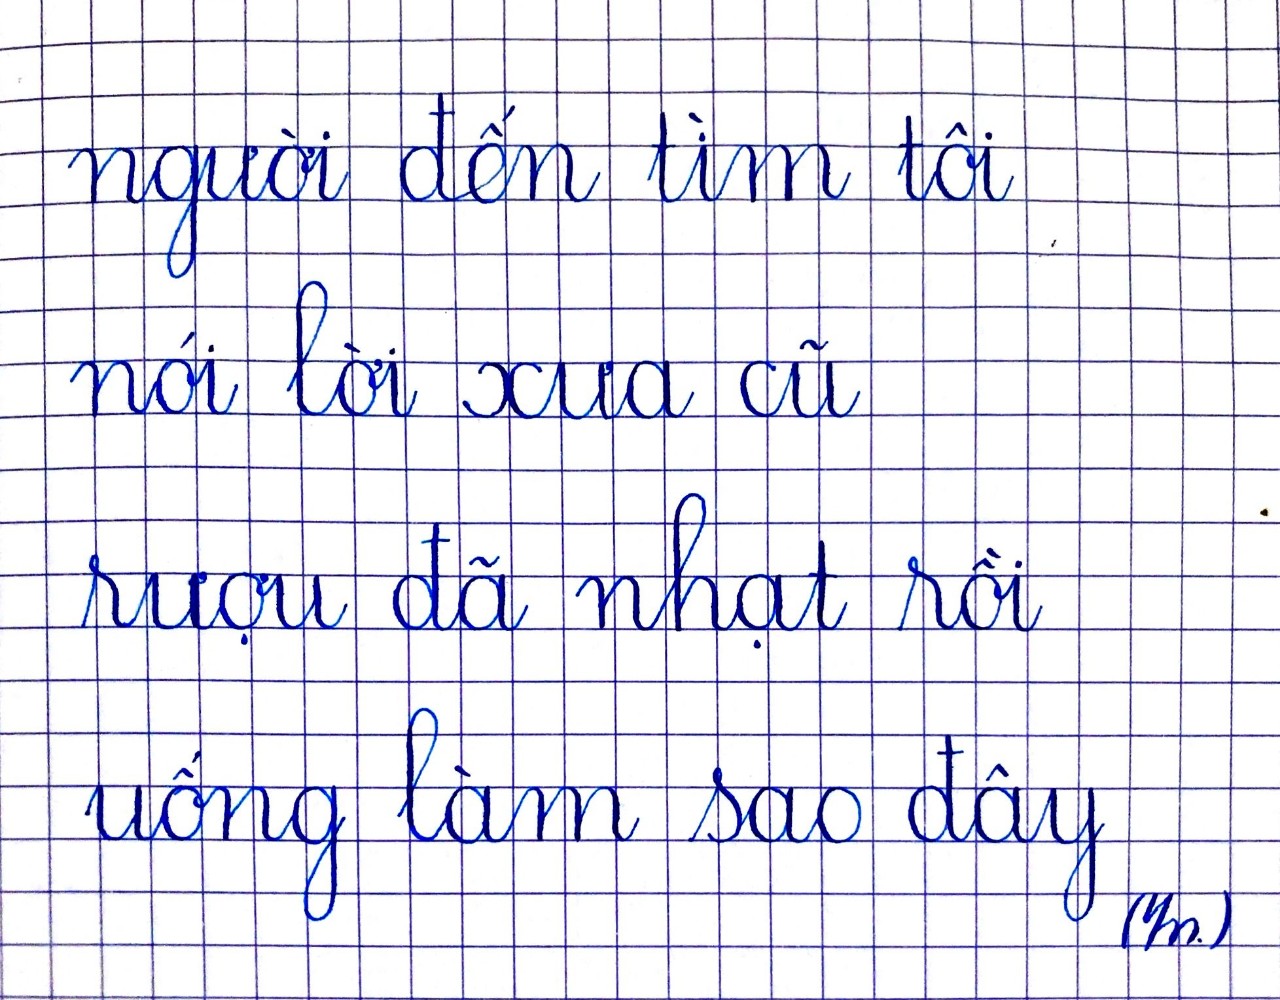 người đến tìm tôi
nói lời xưa cũ
rượu đã nhạt rồi
uống làm sao đây